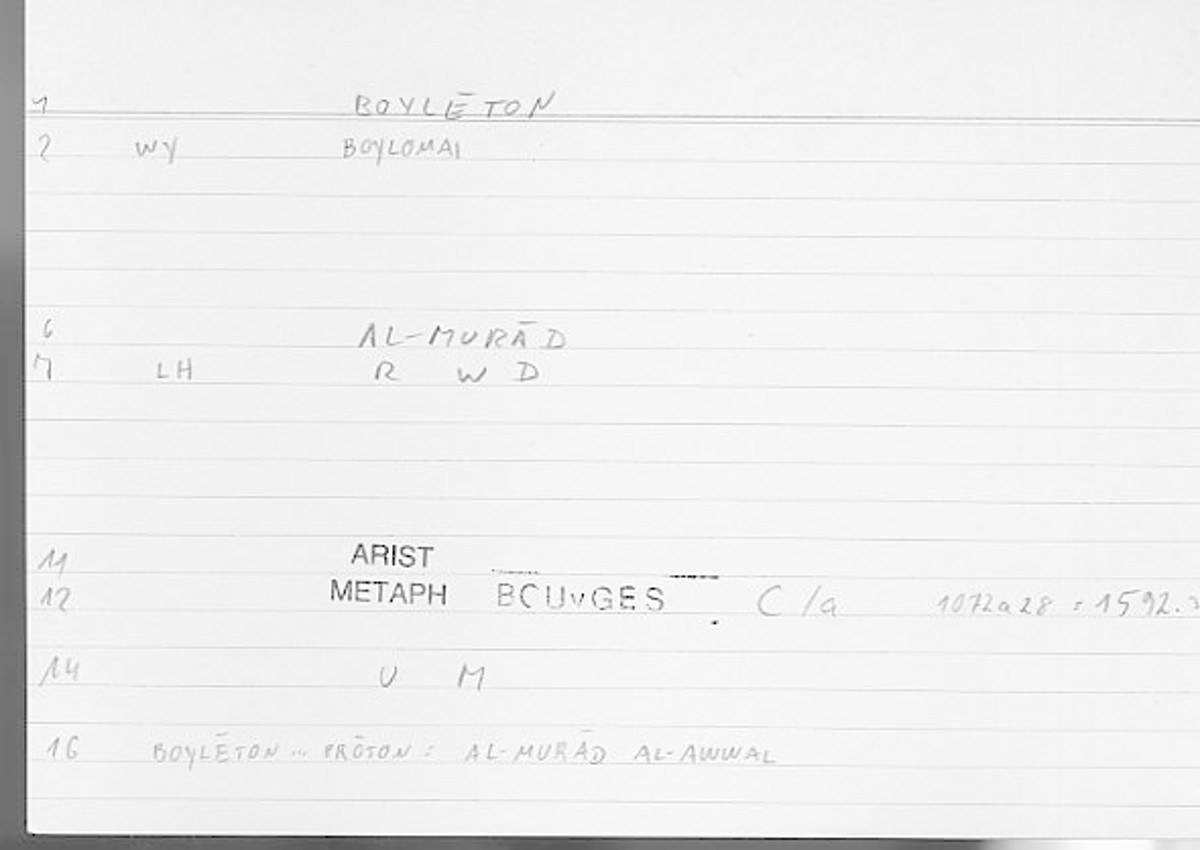 1 BOYLĒTON
2 WY BOYLOMAI
6 AL-MURĀD
7 LH R W D
11 ARIST
12 METAPH BOUYGES C/a 1072a28 : 1592.
14 U M
16 BOYLĒTON ... PRŌTON : AL-MURĀD AL-AWWAL